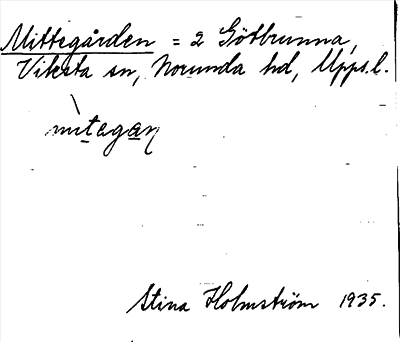 Mittegården = 2 Götbrunna,
Viksta sn, Norunda hd, Upps. l.
mìtagaṇ
Stina Holmström 1935.